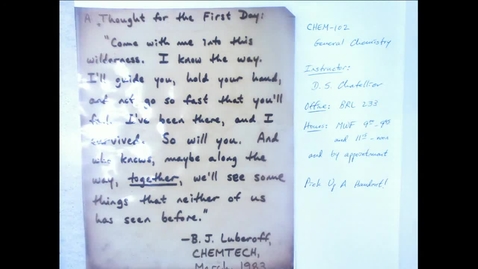 A Thought for the First Day:
"Come with me into this
wilderness. I know the way.
I'll guide you, hold your hand,
and not go so fast that you'll
fall. I've been there, and I
survived. So will you. And
who knows, maybe along the
way, together, we'll see some
things that neither of us
has seen before."
—B. J. Luberoff,
CHEMTECH,
March 1983
CHEM-102
General Chemistry
Instructor:
D. S. Chatellier
Office: BRL 233
Hours: MWF
and
and by appointment
Pick Up A Handout!